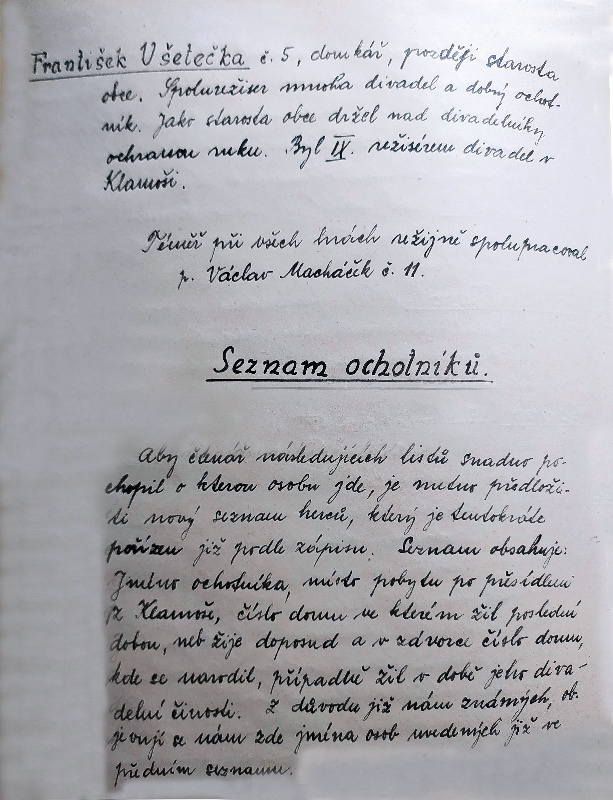 František Všetečka č. 5, domkář, později starosta
obce. Spolurežiser mnoha divadel a dobrý ochot-
ník. Jako starosta obce držel nad divadelníky
ochranou ruku. Byl IX. režisérem divadel v
Klamoši.
Téměř při všech hrách režijně spolupracoval
p. Václav Macháčik č. 11.
Seznam ochotníků.
Aby čtenář následujících listů snadno po-
chopil o kterou osobu jde, je nutno předloži-
ti nový seznam herců, který je tentokráte
pořízen již podle zápisu. Seznam obsahuje:
Jméno ochotníka, místo pobytu po přesídlení
z Klamoše, číslo domu ve kterém žil poslední
dobou, neb žije doposud a v závorce číslo domu,
kde se narodil, případně žil v době jeho diva-
delní činosti. Z důvodu již nám známých, ob-
jevují se nám zde jména osob uvedených již ve
předním seznamu.